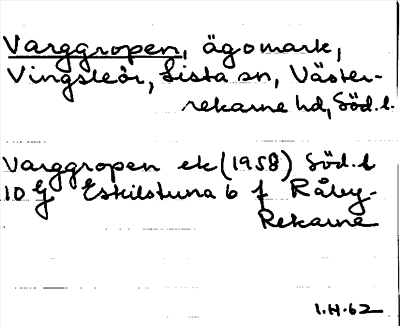 Varggropen, ägomark,
Vingsleör, Lista sn, Väster-
rekarne hd, Söd.l.
Varggropen ek (1958) Söd.l
10 G Eskilstuna 6 f Råby-
Rekarne
1.H.62